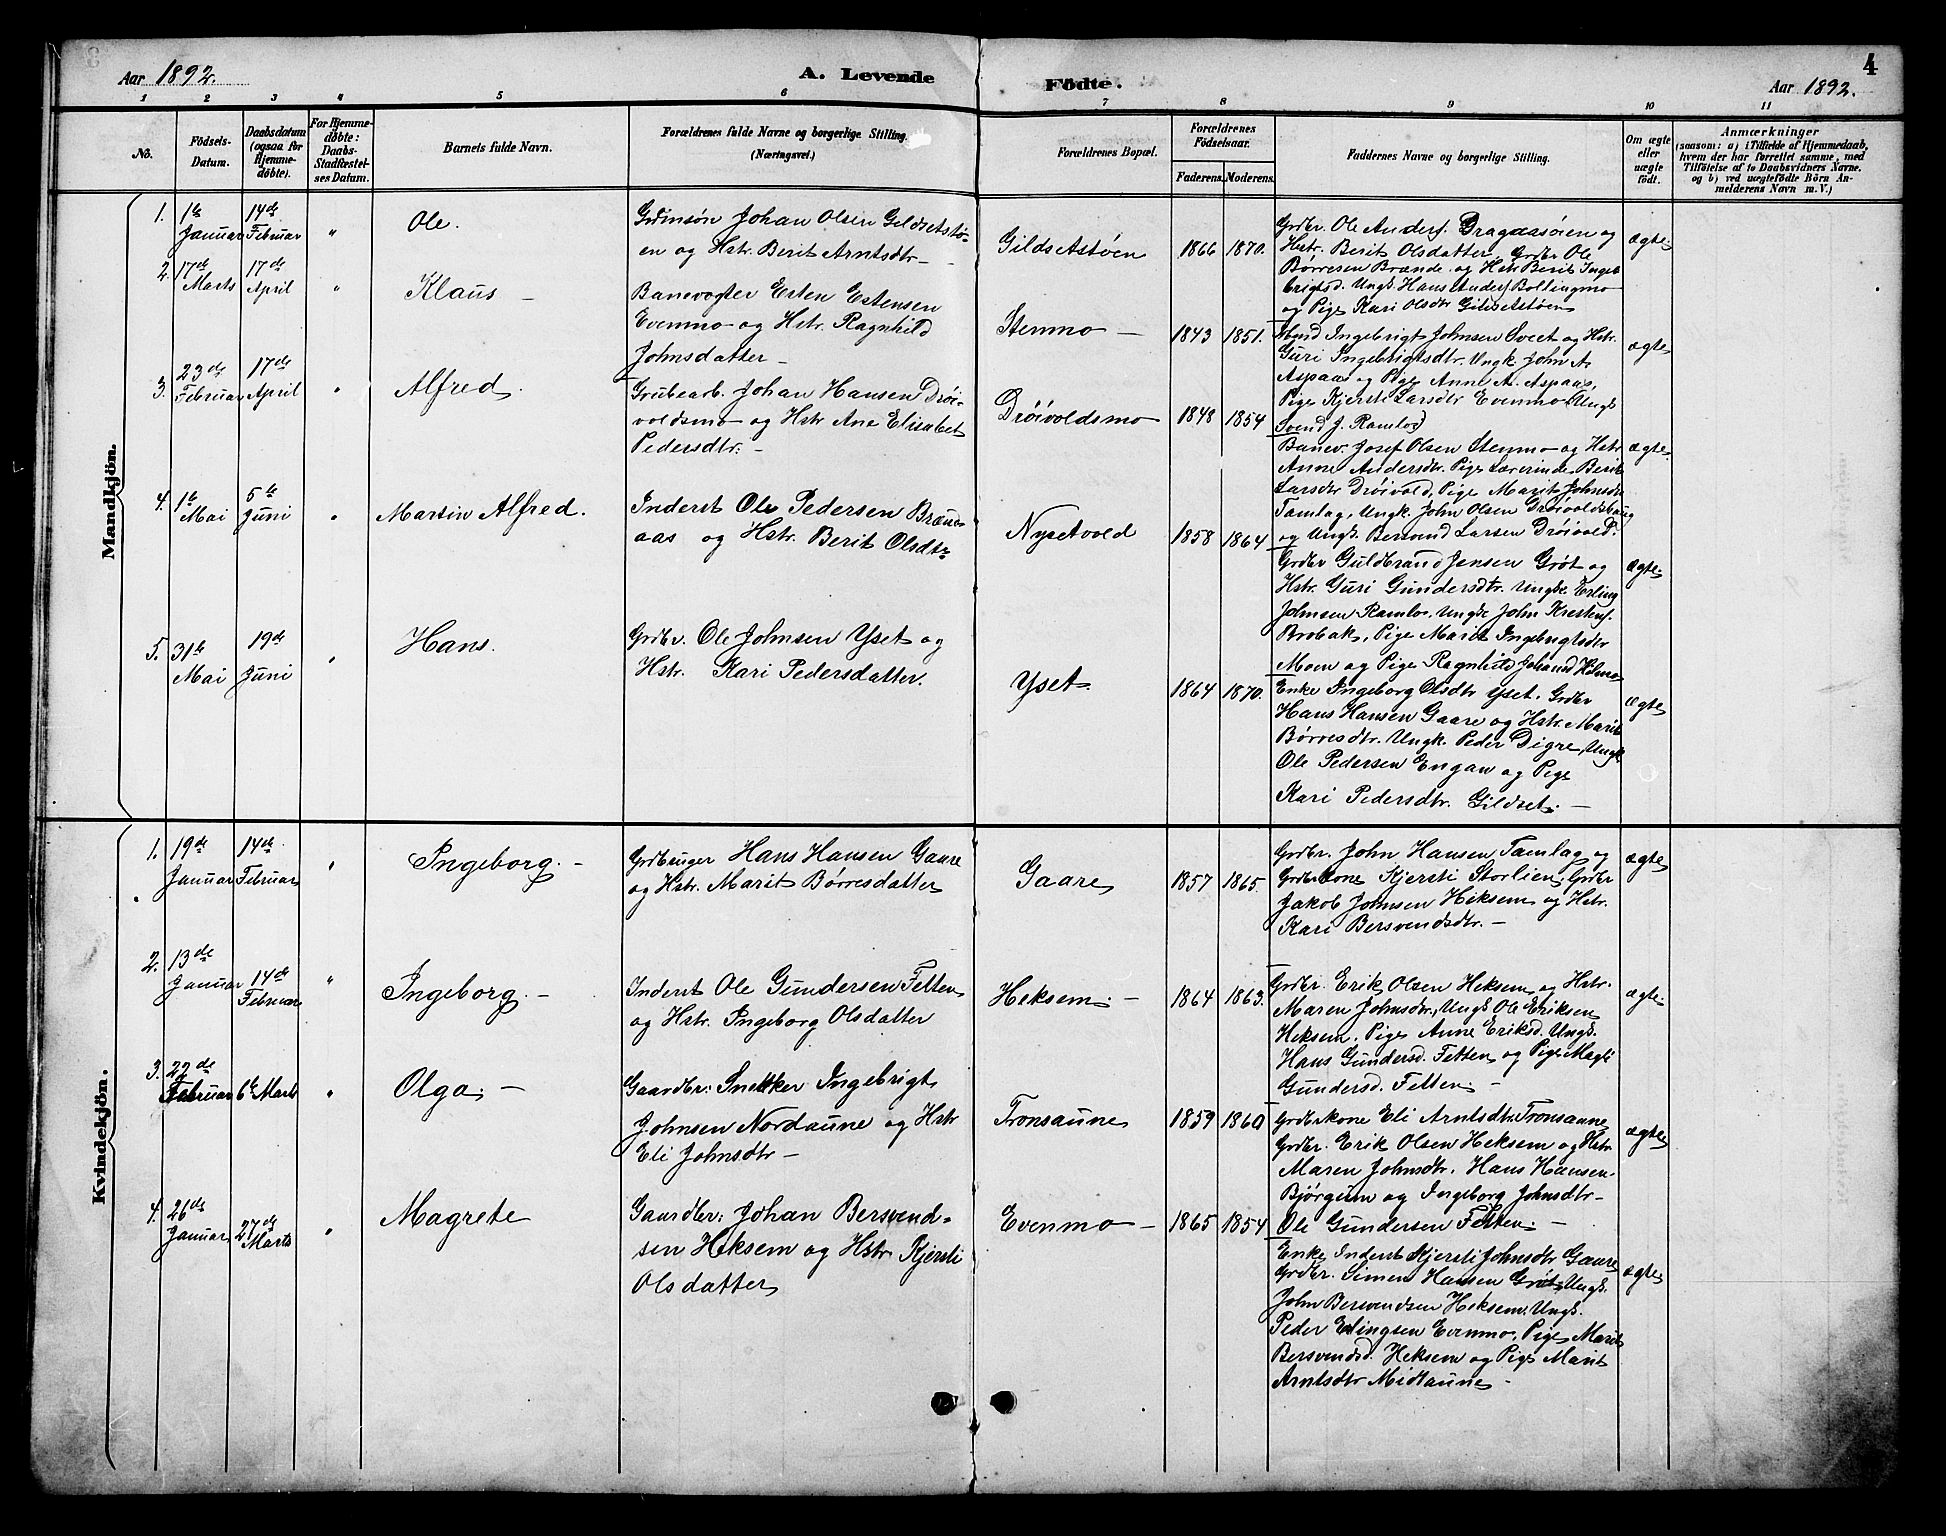 Aar 1892.
A. Levende Födte.
4
Aar 1892.
1 2 3 4 5 6 7 8 9 10 11
No.
Födsels-
Datum.
Daabsdatum
(ogsaa for
Hjemme-
døbte).
For Hjemme-
døbte:
Daabs-
Stadfæstel-
ses Datum.
Barnets fulde Navn.
Forældrenes fulde Navne og borgerlige Stilling.
(Næringsvei.)
Forældrenes Bopæl.
Forældrenes
Födselsaar.
Faderens. Moderens.
Faddernes Navne og borgerlige Stilling.
Om ægte
eller
uægte
født.
Anmærkninger
(saasom: a) i Tilfælde af Hjemmedaab,
hvem der har forrettet samme, med
Tilföielse af to Daabsvidners Navne.
og b) ved uægtefödte Börn An-
melderens Navn m. V.)
Mandkjön.
1. 1ste Januar
14de Februar
"
Ole.
Grdmsøn Johan Olsen Gildsetstø-
en og Hstr. Berit Arntsdtr –
Gildsetstøen
1866 1870.
Grdbr. Ole Anders. Dragaasøien og
Hstr. Berit Olsdatter, Grdbr Ole
Børresen Brænde og Hstr Berit Inge-
brigtsd. Ungk Hans Anders Bollingmo
og Pige Kari Olsdtr Gildsetstøen
ægte
2. 17de Marts
17de April
"
Klaus –
Banevogter Esten Estensen
Evenmo og Hstr. Ragnhild
Johnsdatter –
Stenmo –
1843 1851.
Ingebrigt Johnsen Sveet og Hstr.
Guri Ingebrigtsdtr. Ungk. John A.
Aspaas og Pige Anne A. Aspaas,
Pige Kjersti Larsdtr Evenmo, Ungk
Svend J. Ramlo
ægte
3. 23de Februar
17de April
"
Alfred.
Grubearb. Johan Hansen Drøi-
voldsmo og Hstr Ane Elisabet
Pedersdtr: –
Drøivoldsmo
1848 1854
Banev. Josef Olsen Stenmo og Hstr
Anne Andersdtr. Pige Lærerinde Berit
Larsdtr Drøivold, Pige Marit Johnsdr
Tamlag, Ungk. John Olsen Drøivoldshaug
og Ungk. Bersvend Larsen Drøivold.
ægte
4. 1ste Mai
5te Juni
"
Martin Alfred.
Inderst Ole Pedersen Brænd-
aas og Hstr. Berit Olsdtr
Nysetvold
1858 1864
Grdbr Guldbrand Jensen Grøt og
Hstr. Guri Gundersdtr. Ungk. Erling
Johnsen Ramlo. Ungk John Krestens.
Brobak, Pige Marit Ingebrigtsdtr
Moen og Pige Ragnhild Johansd Holmo
ægte
5. 31te Mai
19de Juni
"
Hans.
Grdbr. Ole Johnsen Yset og
Hstr. Kari Pedersdatter.
Yset.
1864 1870.
Enke Ingeborg Olsdtr Yset. Grdbr
Hans Hansen Gaare og Hstr. Marit
Børresdtr. Ungk. Peder Digre, Ungk
Ole Pedersen Engan og Pige
Kari Pedersdtr. Gildset. –
ægte
Kvindekjön.
1. 19de Januar
14de Februar
"
Ingeborg. –
Grdbruger Hans Hansen Gaare
og Hstr. Marit Børresdatter
Gaare
1857 1865.
Grdbr. John Hansen Tamlag og
Grdbrkone Kjersti Storlien. Grdbr
Jakob Johnsen Heksem og Hstr.
Kari Bersvendsdtr. –
ægte
2. 13de Januar
14de Februar
"
Ingeborg. –
Inderst Ole Gundersen Fetten
og Hstr. Ingeborg Olsdatter
Heksem. –
1864 1863.
Grdbr. Erik Olsen Heksem og Hstr.
Maren Johnsdtr, Ungk Ole Eriksen
Heksem. Pige Anne Eriksd. Ungk.
Hans Gundersd. Fetten og Pige Magli
Gundersd. Fetten. –
ægte.
3. 22de Februar
6te Marts
"
Olga. –
Gaardbr: Snekker Ingebrigt
Johnsen Nordaune og Hstr
Eli Johnsdtr –
Tronsaune
1859 1860
Grdbrkone Eli Arntsdtr. Tronsaune
Grdbr. Erik Olsen Heksem og Hstr.
Maren Johnsdtr. Hans Hansen
Bjørgum og Ingeborg Johnsdtr –
Ole Gundersen Fetten. –
ægte
4. 26de Januar
27de Marts
"
Magrete
Gaardbr: Johan Bersvend-
sen Heksem og Hstr. Kjersti
Olsdatter
Evenmo –
1865 1854
Enke Inderst Kjersti Johnsdtr Gaare
Grdbr. Simen Hansen Grøt, Ungk.
John Bersvendsen Heksem. Ungk.
Peder Elingsen Evenmo, Pige Marit
Bersvendsd. Heksem og Pige Marit
Arntsdtr Midtaune –
ægte